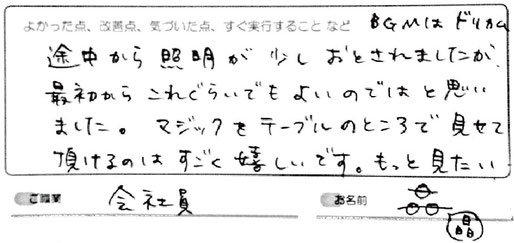 よかった点、改善点、気づいた点、すぐ実行すること など
BGMは ドリカム
途中から照明が少しおとされましたが、
最初からこれぐらいでもよいのではと思い
ました。マジックをテーブルのところで見せて
頂けるのはすごく嬉しいです。もっと見たい
ご職業 会社員
お名前